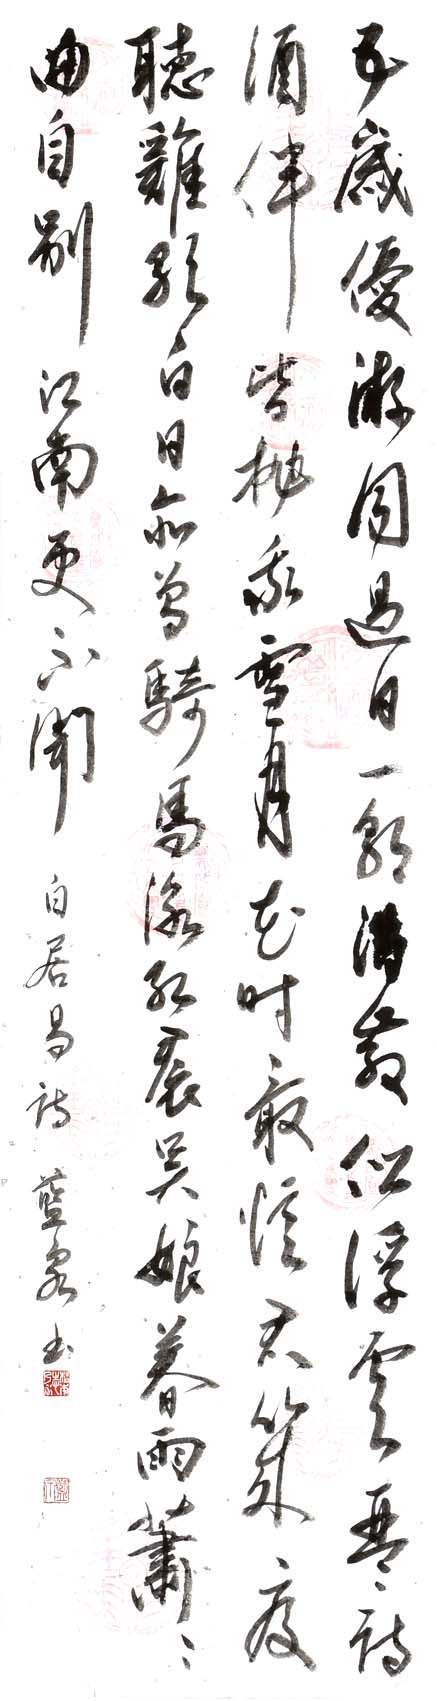 五歲優游同過日一朝消散似浮雲琴詩
酒伴皆拋我雪月花時最憶君幾度
聽雞歌白日亦曾騎馬詠紅裙吳娘暮雨蕭〻
曲自別江南更不聞 白居易詩 藍泉书